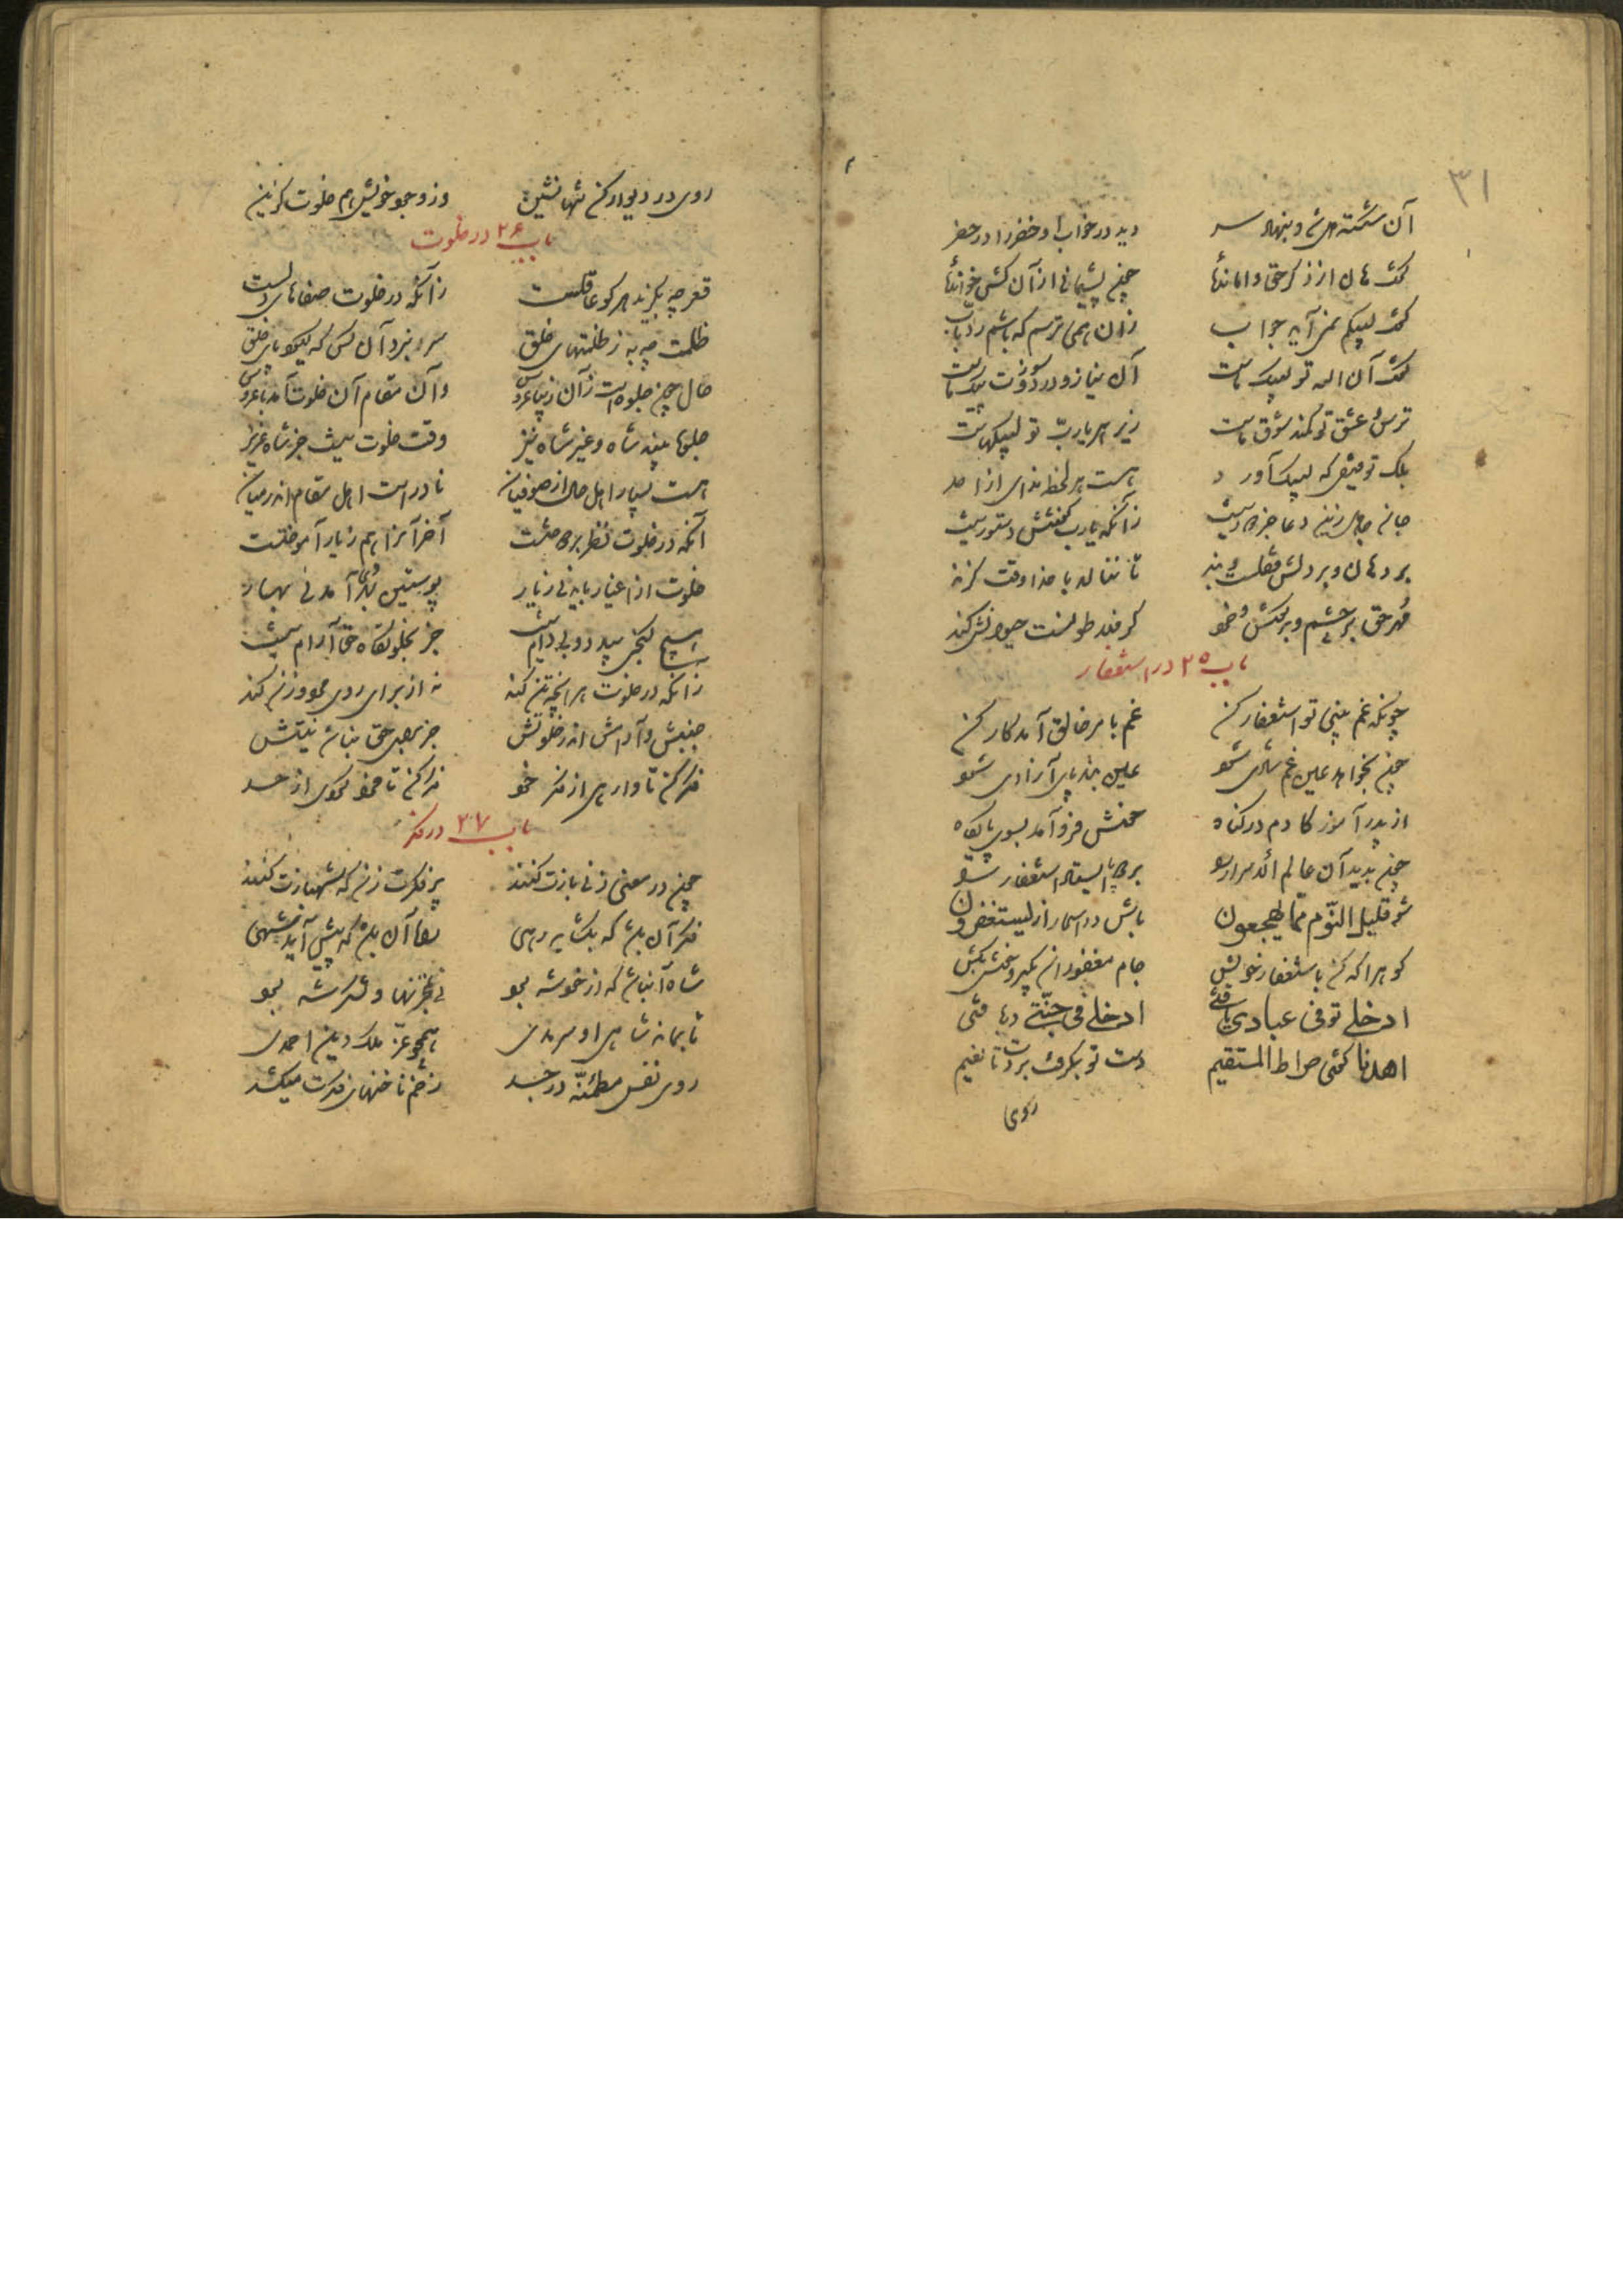 ۳۱
آن شکسته دل شد و بنهاد سر دید در خواب او خضر را در خضر
گفت هان از ذکر حق وامانده‌ای چون پشیمانی از آن کش خوانده‌ای
گفت لبیکم نمی‌آید جواب زان همی ترسم که باشم رد باب
گفت آن الله تو لبیک ماست آن نیاز و درد و سوزت پیک ماست
ترس و عشق تو کمند شوق ماست زیر هر یارب تو لبیکهاست
بلک توفیقی که لبیک آورد هست هر لحظه ندای از احد
جان جاهل زین دعا جز دور نیست زآنکه یارب گفتنش دستور نیست
بر دهان و بر دلش قفلست و بند تا ننالد با خدا وقت گزند
باب ۲۵ در استغفار
چونکه غم بینی تو استغفار کن غم بامر خالق آمد کار کن
چون بخواهد عین غم شادی شود عین بند پای آزادی شود
از پدر آموز کادم در گناه خوش فرو آمد بسوی پایگاه
چون بدید آن عالم الاسرار را بر دو پا استاد استغفار را
شو قلیل النوم مما یهجعون باش در اسحار از یستغفرون
ادخلی تو فی عبادی یافتی ادخلی فی جنتی دریافتی
اهدنا گفتی صراط المستقیم دست تو بگرفت بردت تا نعیم
روی
روی در دیوار کن تنها نشین وز وجود خویش هم خلوت گزین
باب ۲۶ در خلوت
قعر چه بگزید هر کو عاقلست زآنکه در خلوت صفاهای دلست
ظلمت چه به ز ظلمتهای خلق سر نبرد آن کس که گیرد پای خلق
حال چون جلوه است زآن زیبا عروس وآن مقام آن خلوت آمد با عروس
جلوه بیند شاه و غیر شاه نیز وقت خلوت نیست جز شاه عزیز
هست بسیار اهل حال از صوفیان نادر است اهل مقام اندر میان
آنکه در خلوت نظر بر دوختست آخر آنرا هم ز یار آموختست
خلوت از اغیار باید نی ز یار پوستین بهر دی آمد نی بهار
هیچ کنجی بی دد و بی دام نیست جز بخلوتگاه حق آرام نیست
زآنکه در خلوت هر آنچه تن کند نه از برای روی مرد و زن کند
جنبش و آرامش اندر خلوتش جز برای حق نباشد نیتش
باب ۲۷ در فکر
فکر آن باشد که بگشاید رهی راه آن باشد که پیش آید شهی
شاه آن باشد که از خود شه بود نی بمخزنها و لشکر شه بود
تا بماند شاهی او سرمدی همچو عز ملک دین احمدی
روی نفس مطمئنه در جسد زخم ناخنهای فکرت میکشد